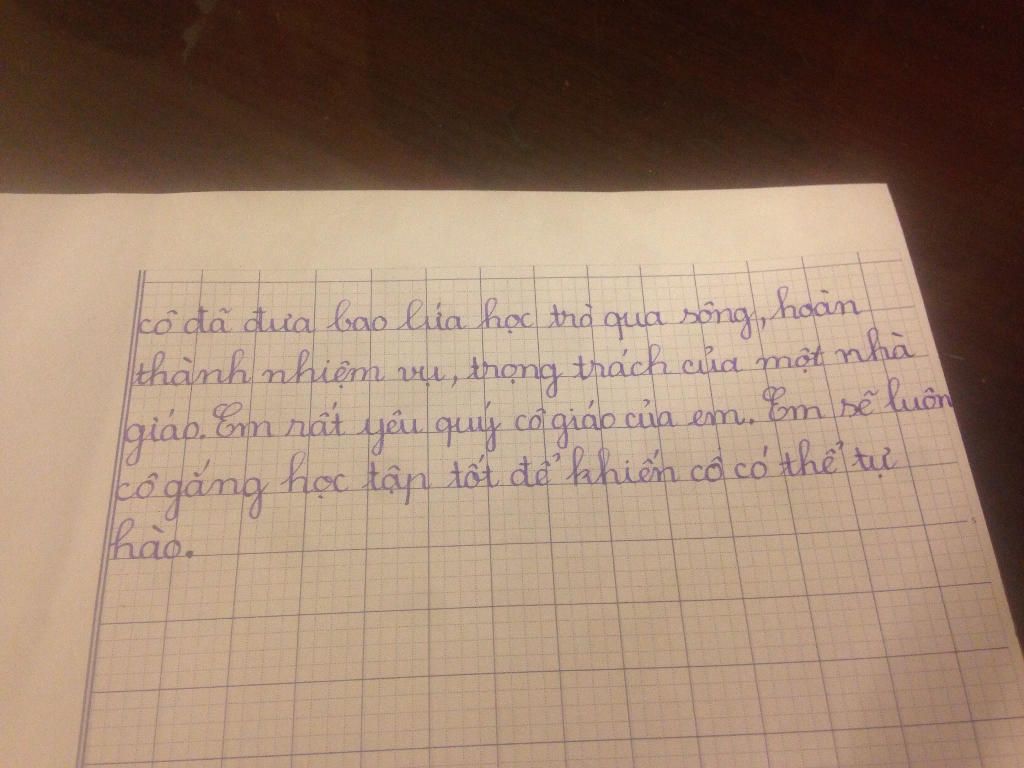 cô đã đưa bao lứa học trò qua sông, hoàn
thành nhiệm vụ, trọng trách của một nhà
giáo. Em rất yêu quý cô giáo của em. Em sẽ luôn
cô gắng học tập tốt để khiến cô có thể tự
hào.